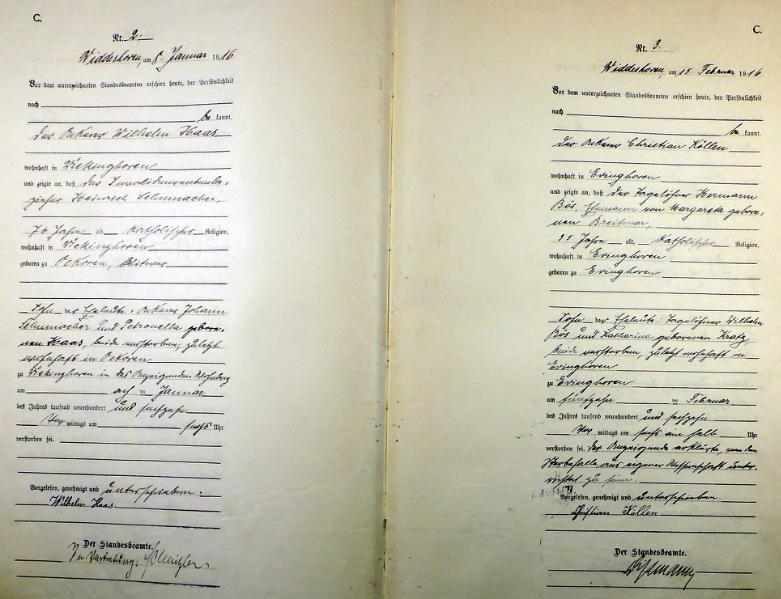 C.
Nr. 2.
Widdeshoven, am 8. Januar 1916
Vor dem unterzeichneten Standesbeamten erschien heute, der Persönlichkeit
nach
be kannt,
der Ackerer Wilhelm Haas
wohnhaft in Vickinghoven
und zeigte an, daß der
Heinrich Schumacher,
76 Jahre alt, katholischer Religion,
wohnhaft in Vickinghoven
geboren zu Oekoven, Witwer
Sohn der Eheleute: Ackerer Johann
Schumacher und Petronella gebore-
nen Haas, beide verstorben, zuletzt
wohnhaft in Oekoven
zu Vickinghoven in des Anzeigenden Behausung
am acht en Januar
des Jahres tausend neunhundert und sechzehn
mittags um sechs Uhr
verstorben sei.
Vorgelesen, genehmigt und unterschrieben.
Wilhelm Haas.
Der Standesbeamte.
In Vertretung:
C.
Nr. 3.
Widdeshoven, am 15. Februar 1916
Vor dem unterzeichneten Standesbeamten erschien heute, der Persönlichkeit
nach
be kannt,
der Ackerer Christian Köllen
wohnhaft in Evinghoven
und zeigte an, daß der Tagelöhner Hermann
Bös, Ehemann von Margareta gebore-
nen
Jahre alt, katholischer Religion,
wohnhaft in Evinghoven
geboren zu Evinghoven
Sohn der Eheleute: Tagelöhner Wilhelm
Bös und Katharina geborenen Kratz
beide verstorben, zuletzt wohnhaft in
Evinghoven
zu Evinghoven
am fünfzehn en Februar
des Jahres tausend neunhundert und sechzehn
mittags um sechs ein halb Uhr
verstorben sei. Der Anzeigende erklärte, von dem
Sterbefalle aus eigener Wissenschaft unter-
richtet zu sein.
Vorgelesen, genehmigt und unterschrieben
Christian Köllen
Der Standesbeamte.